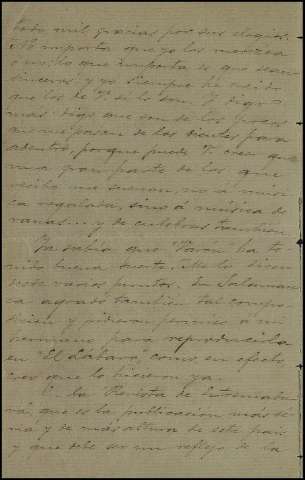 todo mil gracias por sus elogios.
No importa que yo los merezca
o no: lo que importa es que sean
sinceros: y yo siempre he creído
que los de V. sí lo son. Y digo
más: digo que son de los pocos
de los dientes para
adentro, porque puede V. creer que
una gran parte de los que
recibo me suenan, no á músi-
ca regalada, sino á música de
ranas.... y de culebras también.
Ya sabía que "Varón" ha te-
nido buena suerte. Me lo dicen
de varios puntos. En Salaman-
ca agradó también tal compo-
sición y pidieron permiso á mi
hermano para reproducirla
en "El Lábaro", como en efecto
creo que lo hicieron ya.
En la Revista de Extremadu-
ra, que es la publicación más se-
ria y de más altura de este país
y que debe ser un reflejo de la